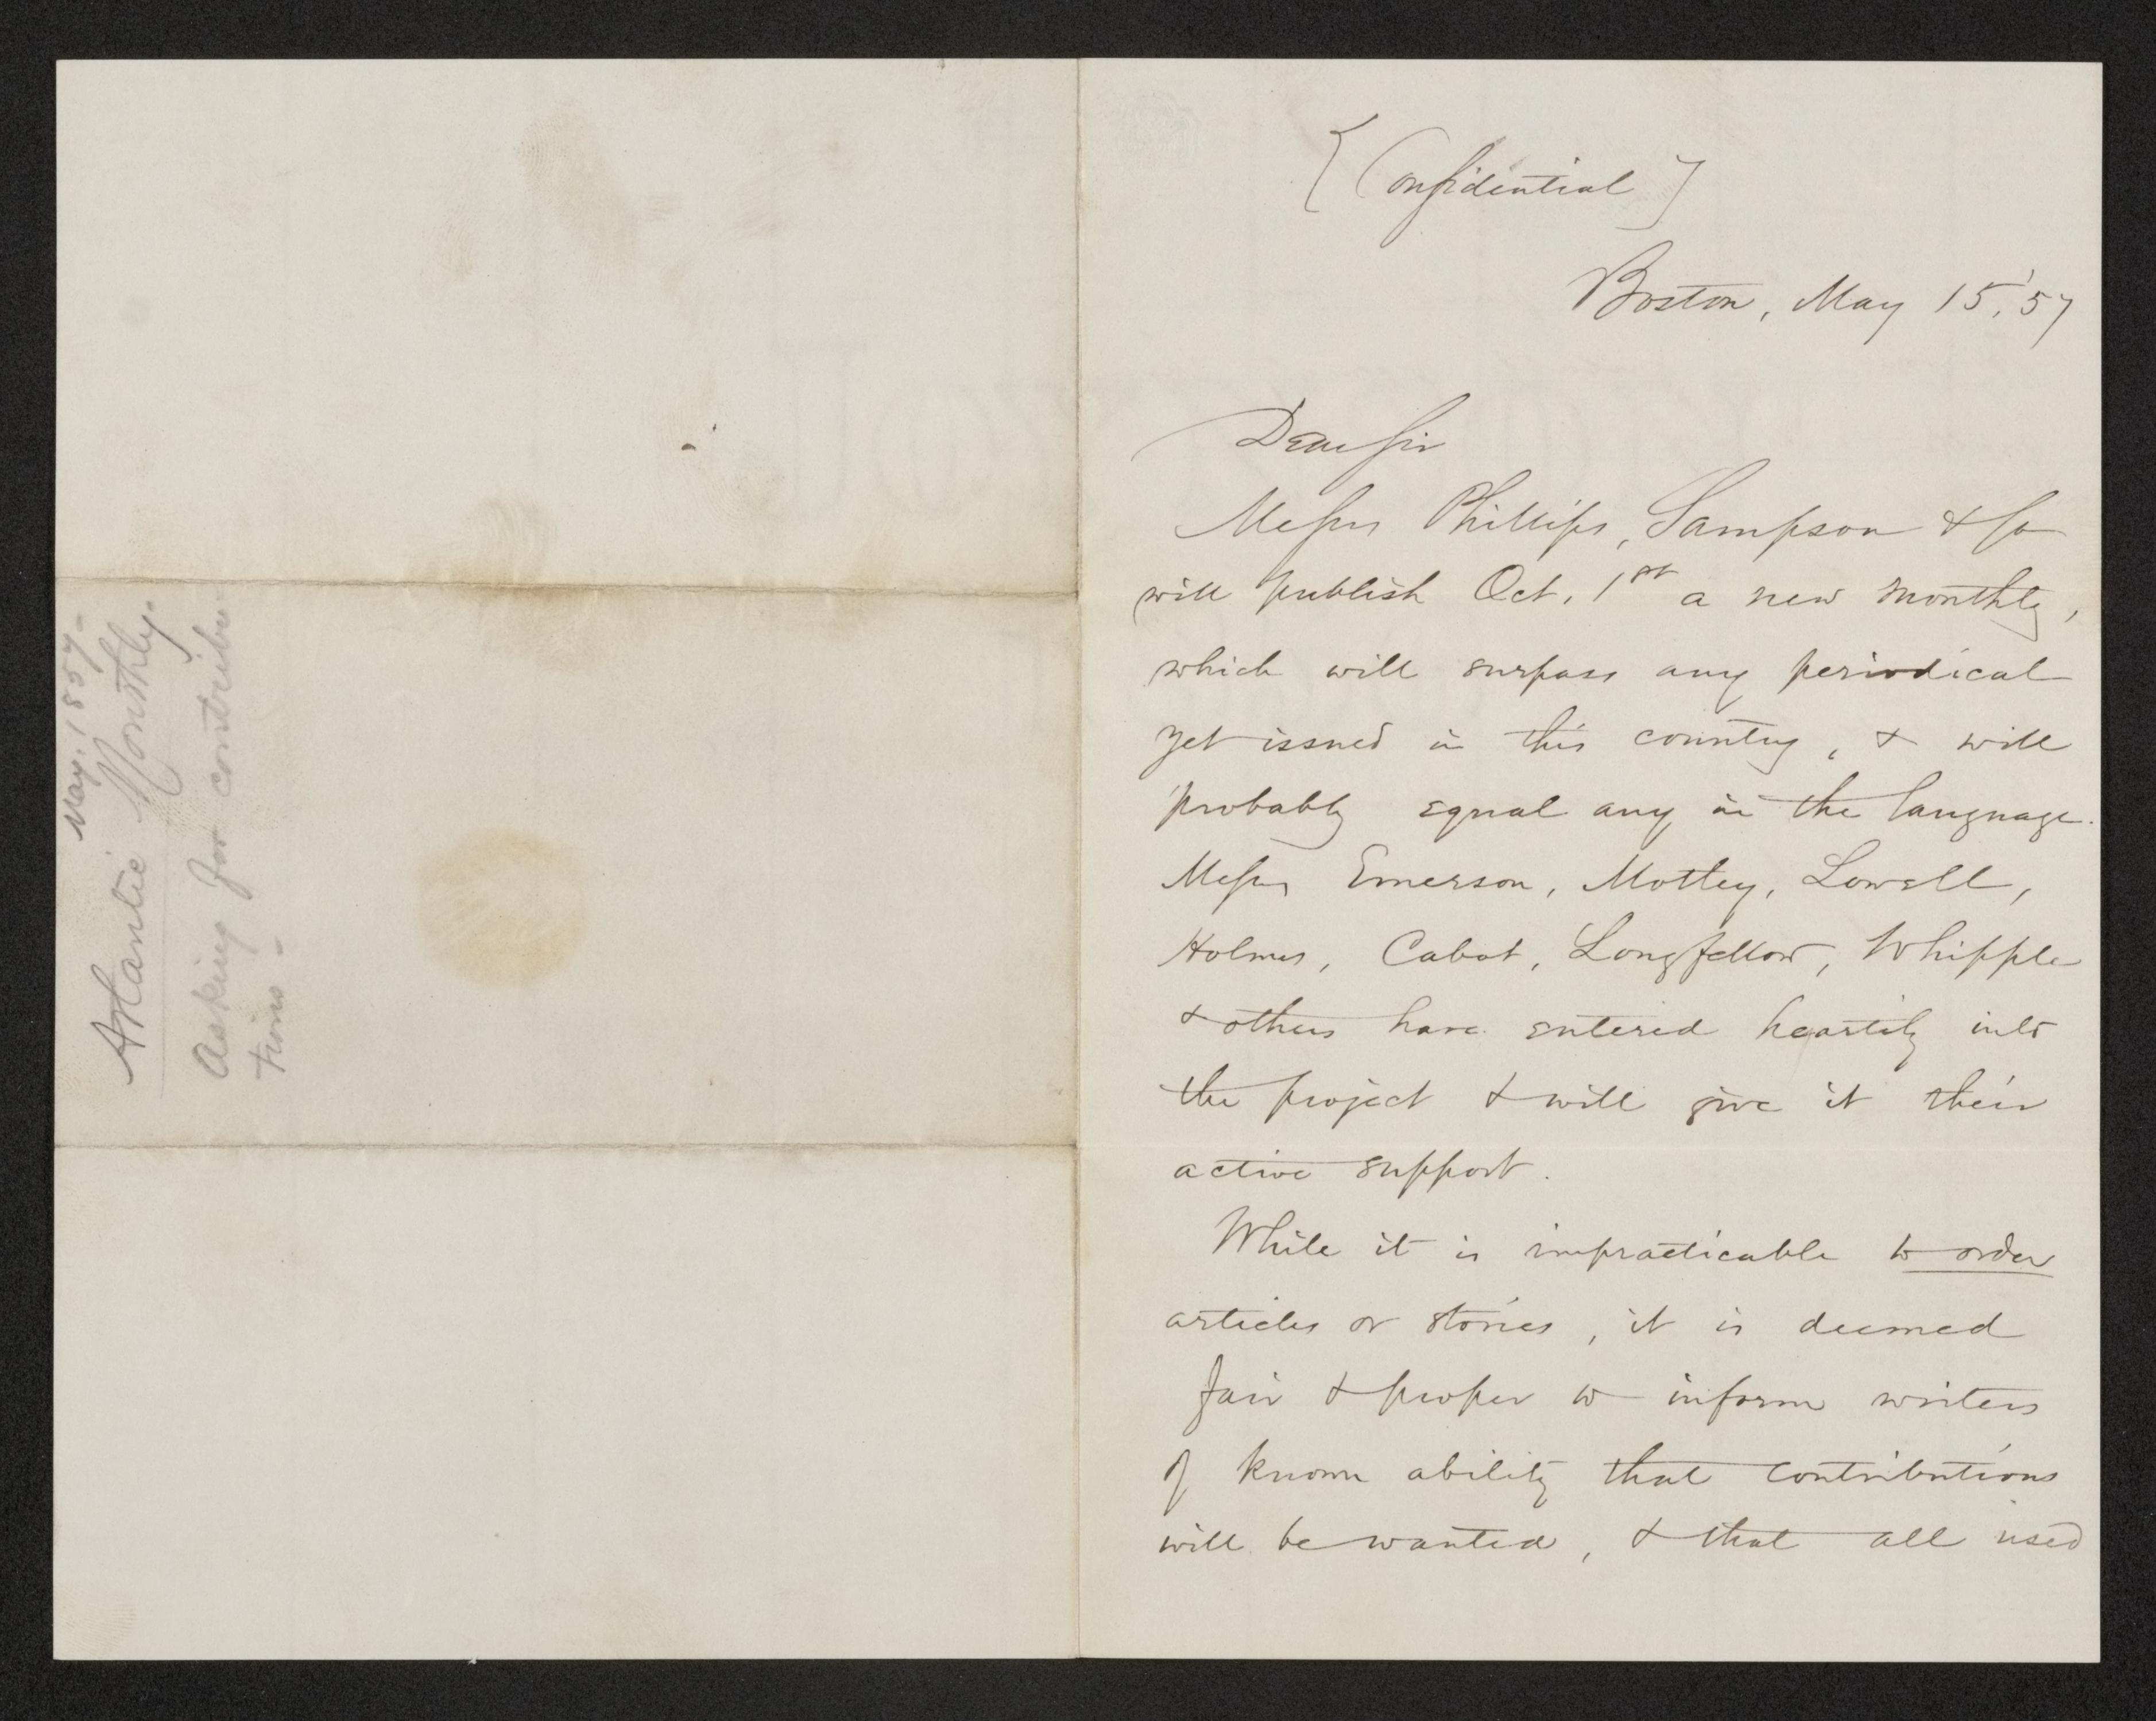 May. 1857-
Atlantic Monthly.
Asking for contribu-
tions -
[Confidential]
Boston, May 15, '57
Dear Sir
Messrs Phillips, Sampson & Co
will publish Oct. 1st a new monthly,
which will surpass any periodical
yet issued in this country, & will
probably equal any in the language.
Messrs Emerson, Motley, Lowell,
Holmes, Cabot, Longfellow, Whipple
& others have entered heartily into
the project & will give it their
active support.
While it is impracticable to order
articles or stories, it is deemed
fair & proper to inform writers
of known ability that contributions
will be wanted, & that all used